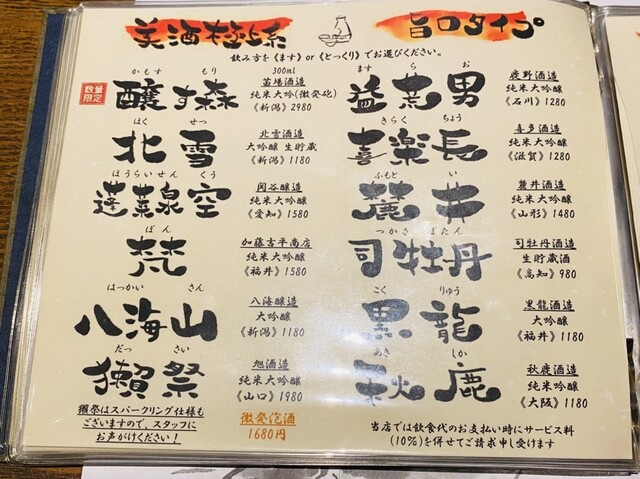 美酒極上系
旨口タイプ
飲み方を《ます》or《とっくり》でお選びください。
数量限定
かもす もり
醸す森
300ml
苗場酒造
純米大吟醸(微発砲)
《新潟》2980
ほく せつ
北雪
北雪酒造
大吟醸 生貯蔵
《新潟》1180
ほうらいせん くう
蓬莱泉空
関谷醸造
純米大吟醸
《愛知》1580
ぼん
梵
加藤吉平商店
純米大吟醸
《福井》1580
はっかい さん
八海山
八海醸造
大吟醸
《新潟》1180
だっ さい
獺祭
旭酒造
純米大吟醸
《山口》1980
獺祭はスパークリング仕様も
ございますので、スタッフに
お声がけください!
微発泡酒
1680円
ます ら お
益荒男
鹿野酒造
純米大吟醸
《石川》1280
きらく ちょう
喜楽長
喜多酒造
純米大吟醸
《滋賀》1280
ふもと い
麓井
麓井酒造
純米大吟醸
《山形》1480
つかさ ぼたん
司牡丹
司牡丹酒造
生貯蔵酒
《高知》980
こく りゅう
黒龍
黒龍酒造
大吟醸
《福井》1180
あき しか
秋鹿
秋鹿酒造
純米吟醸
《大阪》1180
当店では飲食代のお支払い時にサービス料
(10%)を併せてご請求申し受けます